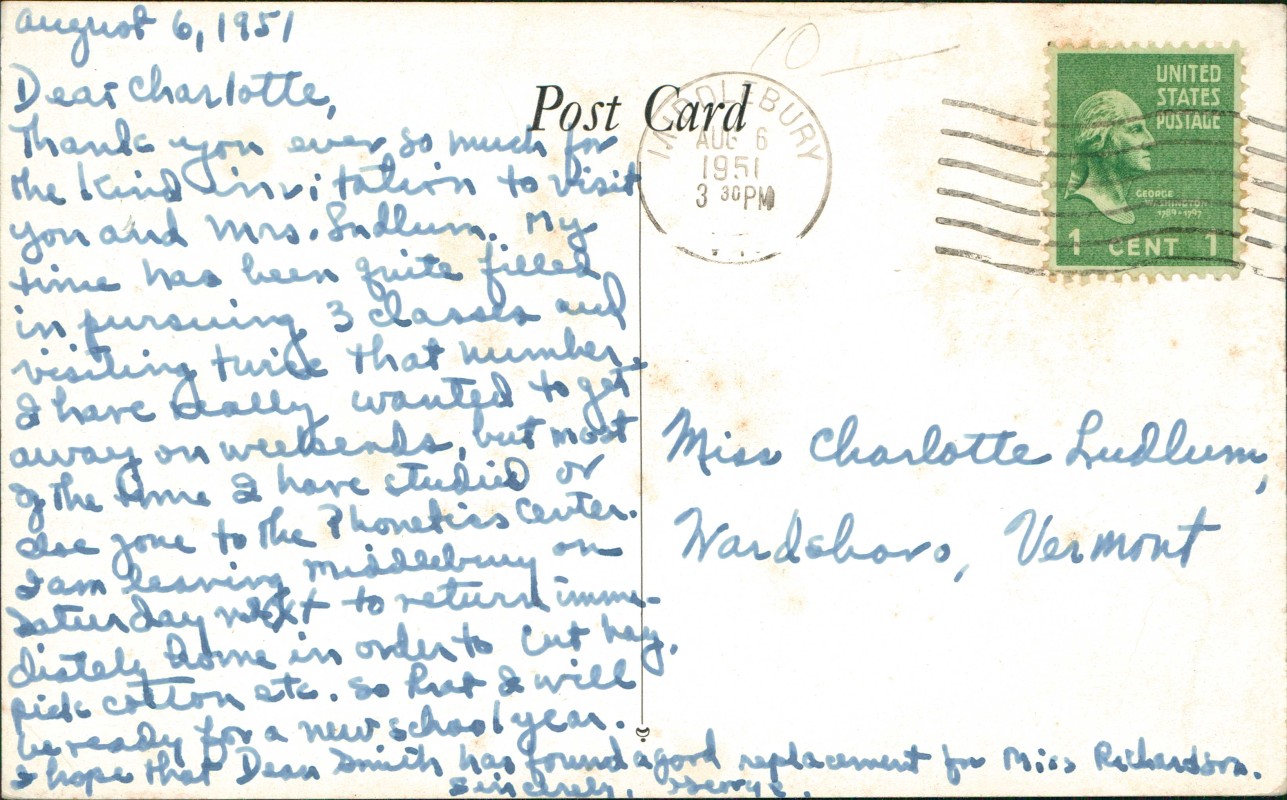 August 6, 1951
Dear Charlotte,
Thank you ever so much for
the kind invitation to visit
you and Mrs. Ludlum. My
time has been quite filled
in pursuing 3 classes and
visiting twice that number.
I have really wanted to get
away on weekends, but most
of the time I have studied or
else gone to the Phonetics Center.
I am leaving Middlebury on
Saturday next to return imme-
diately home in order to cut hay,
pick cotton etc. so that I will
be ready for a new school year.
I hope that Dean Smith has found a good replacement for Miss Richardson.
Sincerely, George.
Post Card
MIDDLEBURY
AUG 6
1951
3 30 PM
10
UNITED
STATES
POSTAGE
GEORGE
WASHINGTON
1789-1797
1 CENT 1
Miss Charlotte Ludlum,
Wardsboro, Vermont